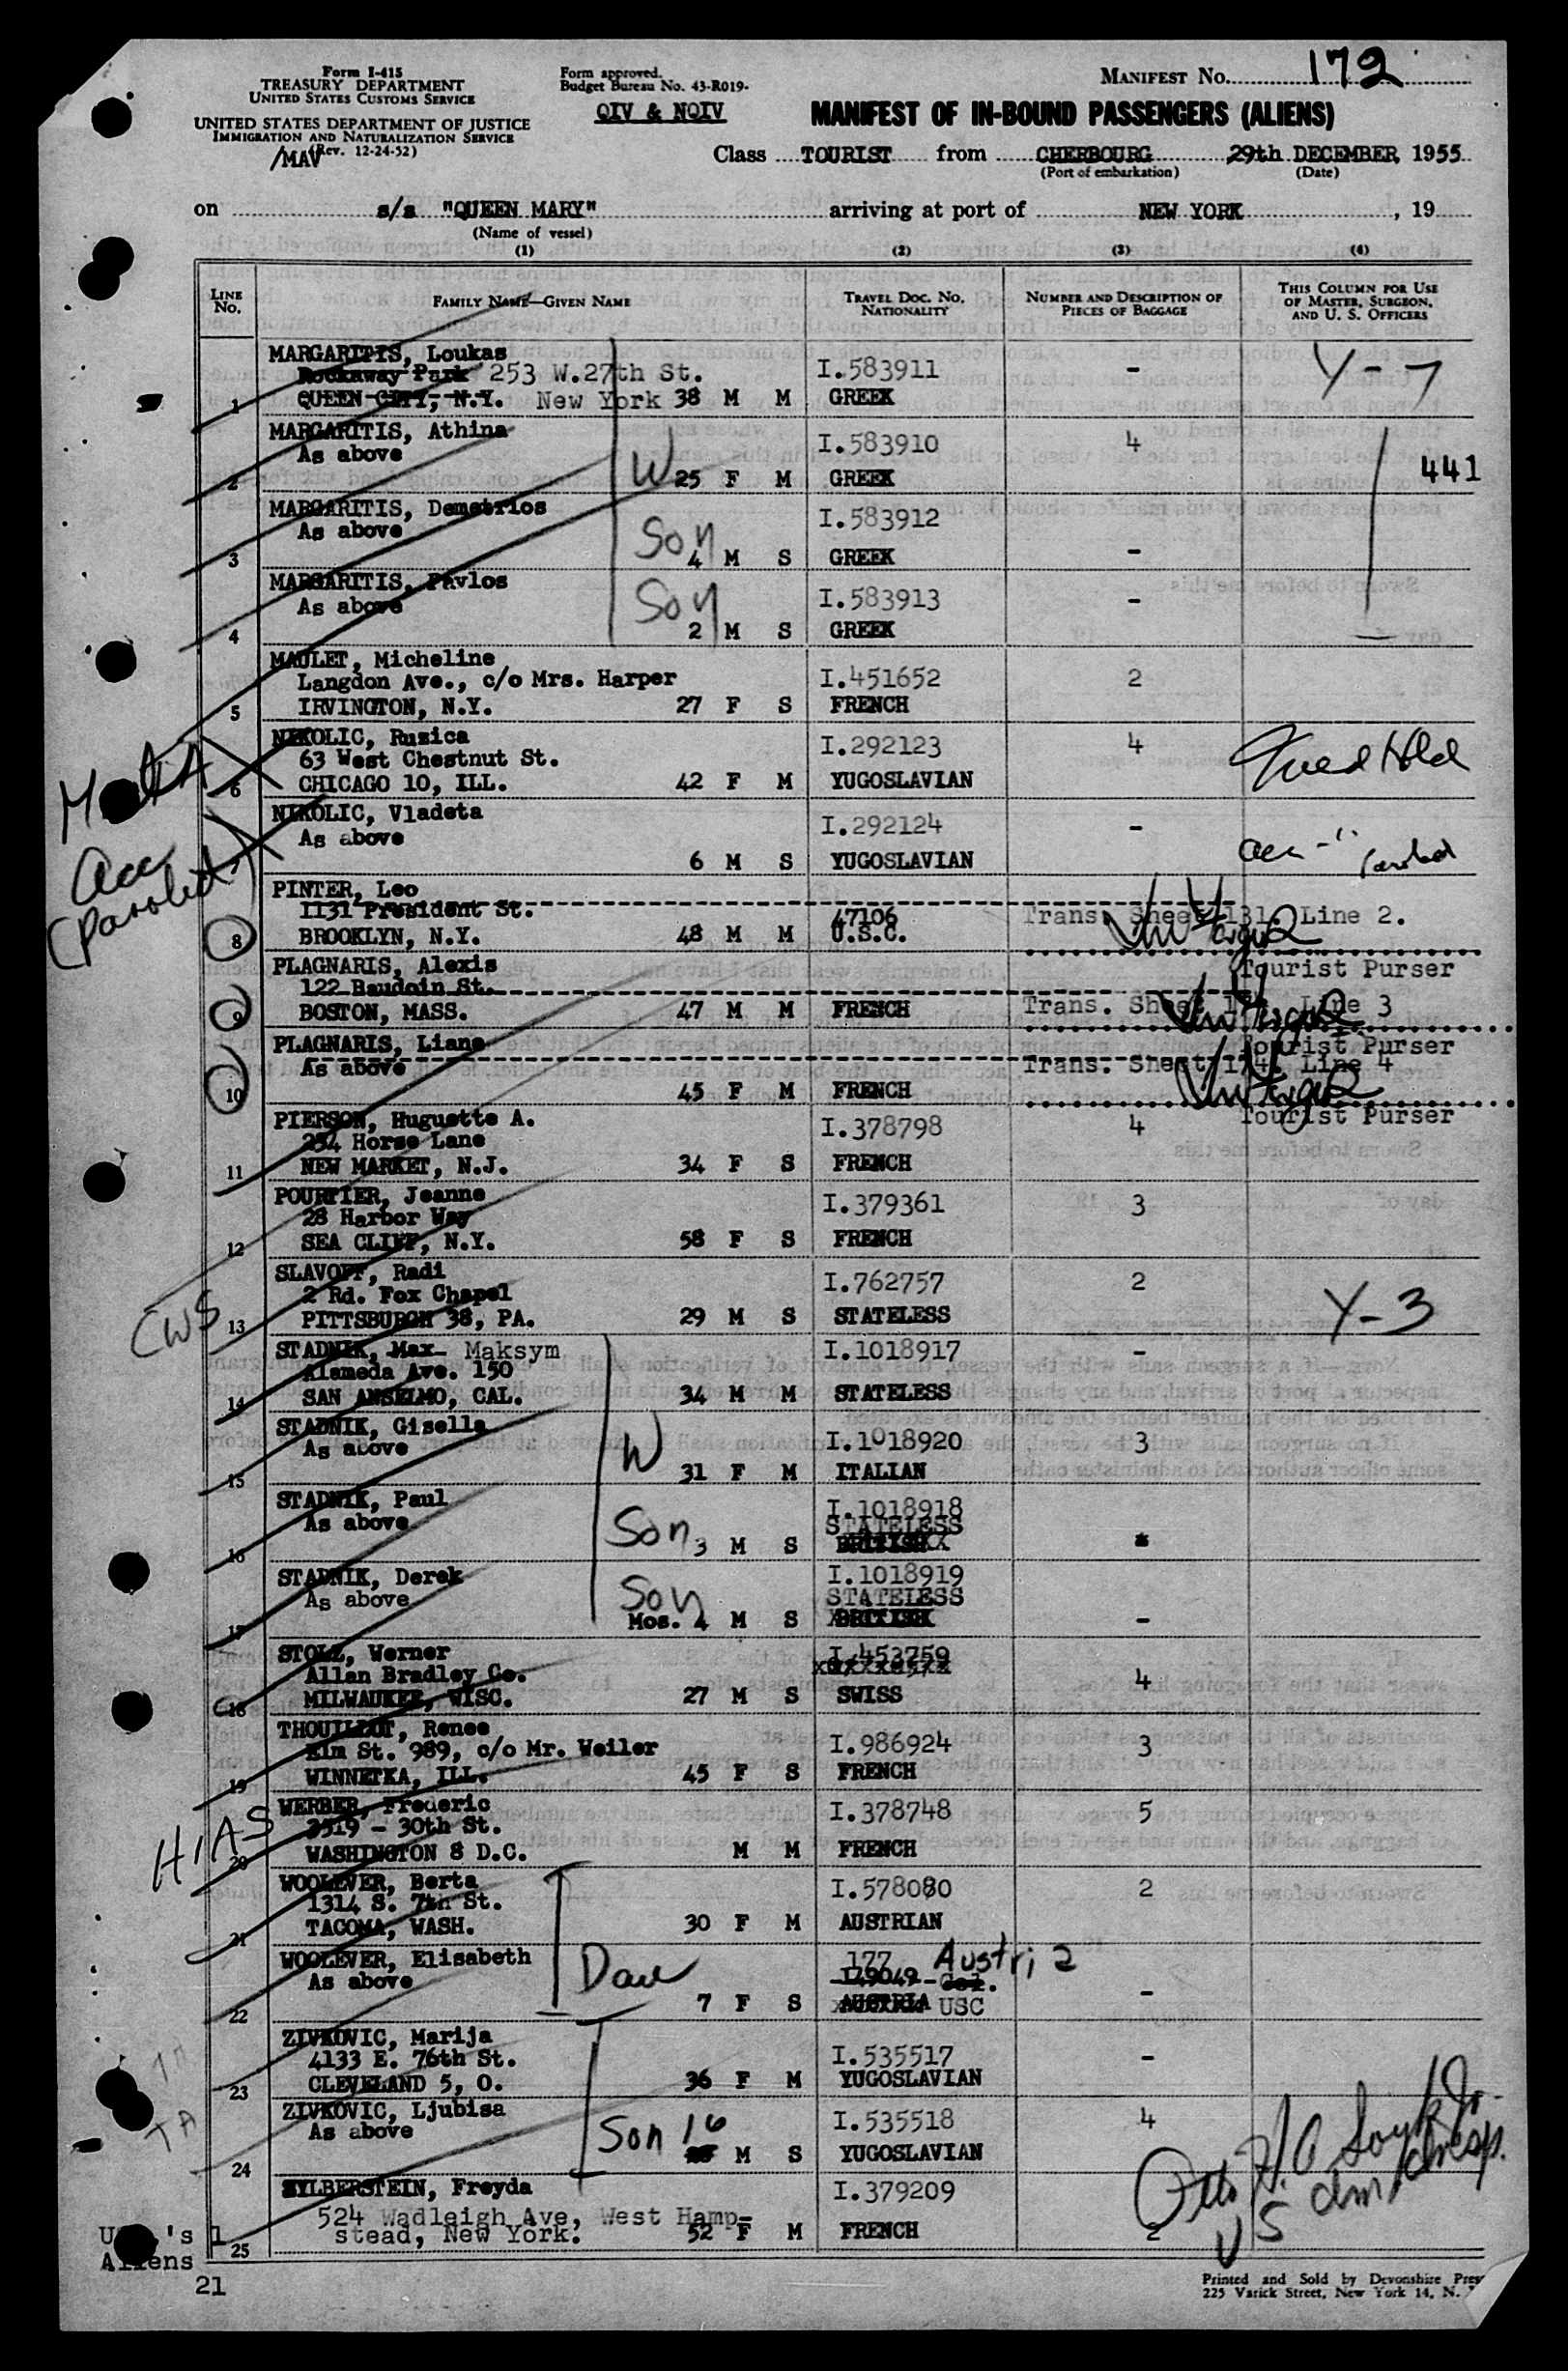 Form I-415
TREASURY DEPARTMENT
UNITED STATES CUSTOMS SERVICE
UNITED STATES DEPARTMENT OF JUSTICE
IMMIGRATION AND NATURALIZATION SERVICE
(Rev. 12-24-52)
/MAV
Form approved.
Budget Bureau No. 43-R019-
QIV & NQIV
MANIFEST NO. 172
MANIFEST OF IN-BOUND PASSENGERS (ALIENS)
Class TOURIST from CHERBOURG 29th DECEMBER, 1955
(Port of embarkation) (Date)
on s/s "QUEEN MARY" arriving at port of NEW YORK, 19
(Name of vessel)
(1) (2) (3) (4)
LINE NO. FAMILY NAME—GIVEN NAME TRAVEL DOC. NO. NATIONALITY NUMBER AND DESCRIPTION OF PIECES OF BAGGAGE THIS COLUMN FOR USE OF MASTER, SURGEON, AND U. S. OFFICERS
MARGARITIS, Loukas I.583911 - Y-7
Rockaway Park 253 W.27th St.
1 QUEEN CITY, N.Y. New York 38 M M GREEK
MARGARITIS, Athina I.583910 4
As above 441
2 W 25 F M GREEK
MARGARITIS, Demetrios I.583912
As above
3 Son 4 M S GREEK -
MARGARITIS, Pavlos I.583913 -
As above
4 Son 2 M S GREEK
MAULET, Micheline
Langdon Ave., c/o Mrs. Harper I.451652 2
5 IRVINGTON, N.Y. 27 F S FRENCH
NIKOLIC, Ruzica I.292123 4
63 West Chestnut St. Hold
6 CHICAGO 10, ILL. 42 F M YUGOSLAVIAN
NIKOLIC, Vladeta I.292124 -
As above
6 M S YUGOSLAVIAN
acc
(Paroled)
PINTER, Leo
1131 President St. 47106 Trans. Sheet 131. Line 2.
8 BROOKLYN, N.Y. 48 M M U.S.C.
Tourist Purser
PLAGNARIS, Alexis
122 Baudoin St.
9 BOSTON, MASS. 47 M M FRENCH Trans. Sheet Line 3
Tourist Purser
PLAGNARIS, Liane
As above Trans. Sheet 174. Line 4
10 45 F M FRENCH
Tourist Purser
PIERSON, Huguette A. I.378798 4
254 Horse Lane
11 NEW MARKET, N.J. 34 F S FRENCH
POURTIER, Jeanne I.379361 3
28 Harbor Way
12 SEA CLIFF, N.Y. 58 F S FRENCH
SLAVOFF, Radi I.762757 2
2 Rd. Fox Chapel Y-3
CWS 13 PITTSBURGH 38, PA. 29 M S STATELESS
STADNIK, Max Maksym I.1018917 -
Alameda Ave. 150
14 SAN ANSELMO, CAL. 34 M M STATELESS
STADNIK, Gisella I.1018920 3
As above
15 W 31 F M ITALIAN
STADNIK, Paul I.1018918
As above STATELESS
16 Son 3 M S BRITISH
STADNIK, Derek I.1018919
As above STATELESS
17 Son Mos. 4 M S BRITISH -
STOLZ, Werner I.453759
Allan Bradley Co. 4
18 MILWAUKEE, WISC. 27 M S SWISS
THOUILLOT, Renee I.986924 3
Elm St. 989, c/o Mr. Weiler
19 WINNETKA, ILL. 45 F S FRENCH
WERBER, Frederic I.378748 5
3519 - 30th St.
HIAS 20 WASHINGTON 8 D.C. M M FRENCH
WOOLEVER, Berta I.578080 2
1314 S. 7th St.
21 TACOMA, WASH. 30 F M AUSTRIAN
WOOLEVER, Elisabeth 177 Austria
As above Dau I49049
22 7 F S AUSTRIA USC -
ZIVKOVIC, Marija
4133 E. 76th St. I.535517 -
23 CLEVELAND 5, O. 36 F M YUGOSLAVIAN
ZIVKOVIC, Ljubisa I.535518 4
As above
24 Son 16 M S YUGOSLAVIAN
ZYLBERSTEIN, Freyda I.379209
524 Wadleigh Ave, West Hamp-
25 stead, New York. 52 F M FRENCH 2
US
's 1
Aliens
21
Printed and Sold by Devonshire
225 Varick Street, New York 14, N.